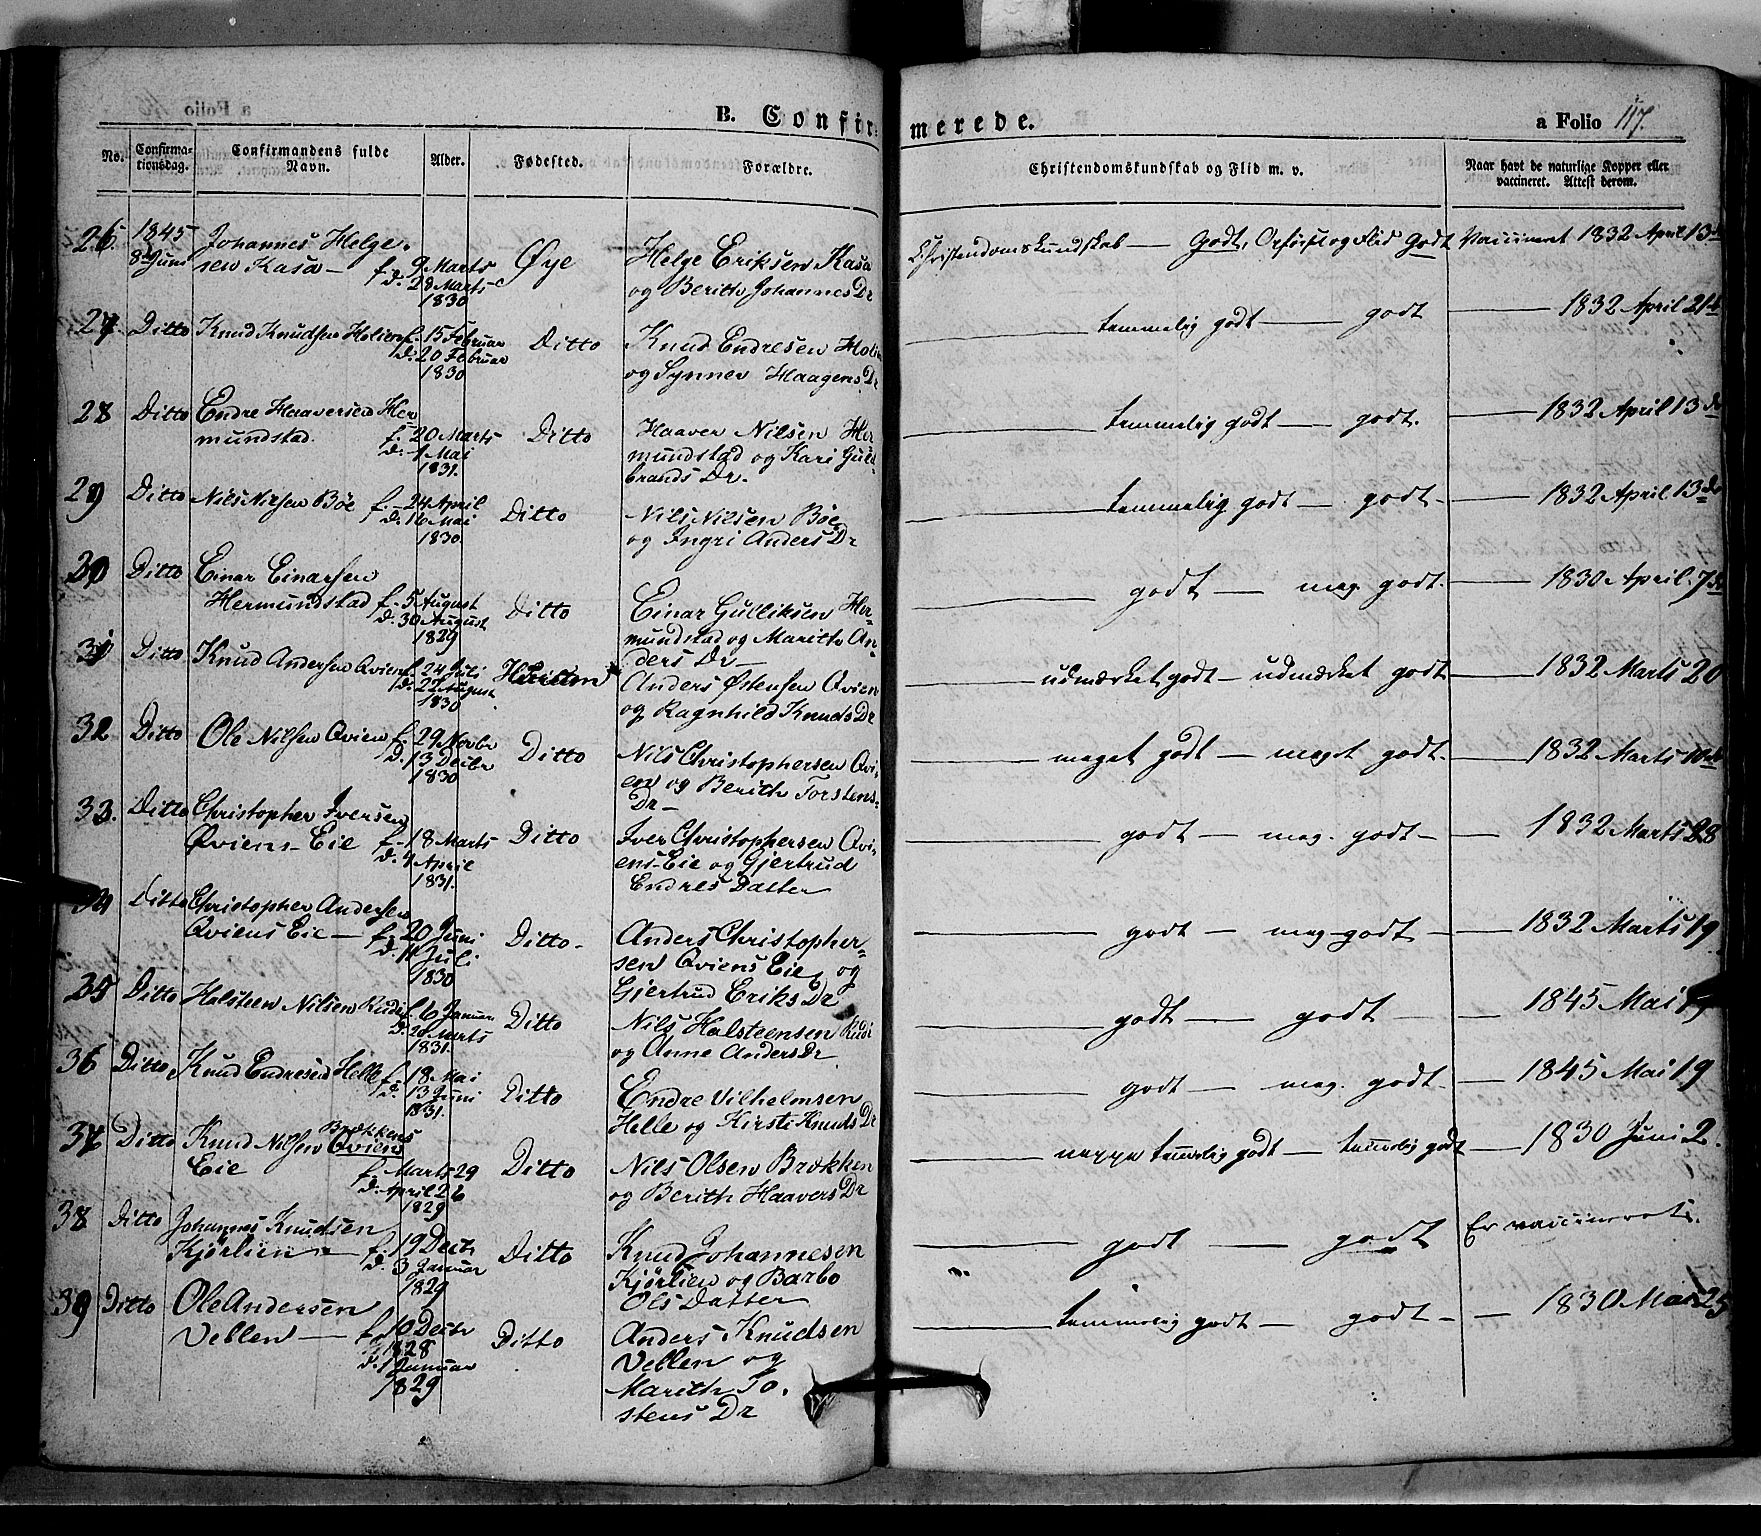 B. Confirmerede.
a Folio 117.
No. Confirmationsdag. Confirmandens fulde Navn. Alder. Fødested. Forældre. Christendomskundskab og Flid m. v. Naar havt de naturlige Kopper eller vaccineret. Attest derom.
26. 1845 Johannes Helge-
8 Juni sen Kasa — f. 9 Marts Øye Helge Eriksen Kasa Christendomskundskab — Godt, og Flid Godt Vaccineret 1832 April 13de
d. 28 Marts og Berith Johannes Dr
1830
27. Ditto Knud Knudsen f. 15 Februar Ditto Knud Endresen temmelig godt — godt — 1832 April 21de
d. 20 Februar og Synnev Haagens Dr
1830
28 Ditto Endre Haaversen Her Haaver Nilsen Her temmelig godt — godt. — 1832 April 13de
mundstad. f. 20 Marts Ditto mundstad og Kari Guld
d. 1 Mai brands Dr.
1831.
29 Ditto Nils Nilsen Bøe f. 24 April Ditto Nils Nilsen Bøe temmelig godt — godt — 1832 April 13de
d. 16 Mai og Ingri Anders Dr
1830
30 Ditto Einar Einarsen godt — meg. godt. — 1830 April 7de
Hermundstad f. 5 August Ditto Einar Gulliksen Her-
d. 30 August mundstad og Marith An-
1829 ders Dr —
31 Ditto Knud Andersen Qvien f. 24 Juli Anders Østensen Qvien udmærket godt — udmærket godt — 1832 Marts 20
d. 22 August og Ragnhild Knuds Dr
1830
32 Ditto Ole Nilsen Qvien f. 29 Novbr Ditto Nils Christophersen Qvi- meget godt — meget godt. — 1832 Marts
d. 13 Decbr en og Berith Torstens-
1830 Dr —
33. Ditto Christopher Iversen
Qviens-Eie f. 18 Marts Ditto Iver Christophersen Qvi- godt — meg. godt — 1832 Marts 28
d. 4 April ens-Eie og Gjertrud
1831. Endres Datter
34 Ditto Christopher Andersen
Qviens Eie — f. 20 Juni Ditto — Anders Christopher- godt — meg. godt — 1832 Marts 19
d. 11 Juli sen Qviens Eie og
1830 Gjertrud Eriks Dr
35 Ditto Halsteen Nilsen Rudi f. 6 Januar Ditto Nils Halsteensen Rudi godt — godt — 1845 Mai 19
d. 20 Marts og Anne Anders Dr
1831.
36 Ditto Knud Endresen Helle f. 18 Mai Ditto Endre Vilhelmsen godt — meg. godt — 1845 Mai 19
d. 13 Juni Helle og Kirsti Knuds Dr
1831.
37 Ditto Knud Nilsen Brækkens Qviens
Eie f. Marts 29 Ditto Nils Olsen Brækken neppe temmelig godt — temmelig godt — 1830 Juni 2.
d. April 26 og Berith Haavers Dr
1829
38 Ditto Johannes Knudsen
Kjørlien — f. 19 Decbr Ditto Knud Johannesen godt — godt Er vaccineret.
d. 3 Januar Kjørlien og Barbo
1829 Ols Datter
39 Ditto Ole Andersen
Vellen — f. 10 Decbr Ditto Anders Knudsen temmelig godt — godt — 1830 Mai 25
1828 Vellen og
d. 1 Januar Marith To.
1829 stens Dr